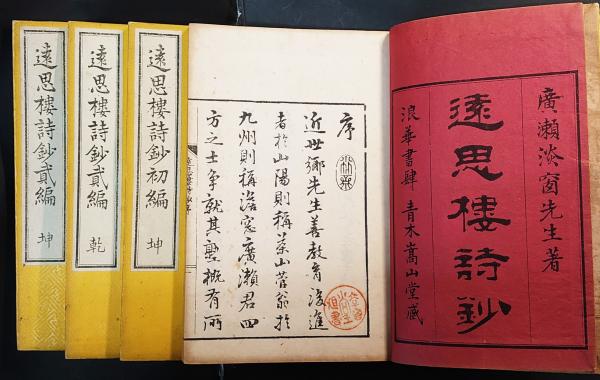 廣瀬淡窗先生著
遠思樓詩鈔
浪華書肆 青木嵩山堂藏
序
近世鄉先生善教育後進
者於山陽則稱茶山菅翁於
九州則稱淡窓廣瀨君四
方之士爭就其塾概有所
遠思樓詩鈔初編 坤
遠思樓詩鈔貳編 乾
遠思樓詩鈔貳編 坤